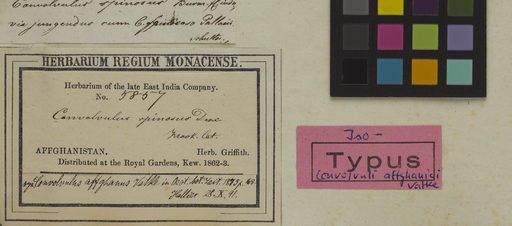 Convolvulus spinosus Burm. fl. ind.
vix jungendus cum C. spinoso Pallasii
HERBARIUM REGIUM MONACENSE.
Herbarium of the late East India Company.
No. 5857
Convolvulus spinosus Desr
Hook. Cat.
AFFGHANISTAN, Herb. Griffith.
Distributed at the Royal Gardens, Kew. 1862-3.
Convolvulus affghanus Vatke in Oest. Bot.
Hallier
Iso-
Typus
Convolvuli affghanici
Vatke